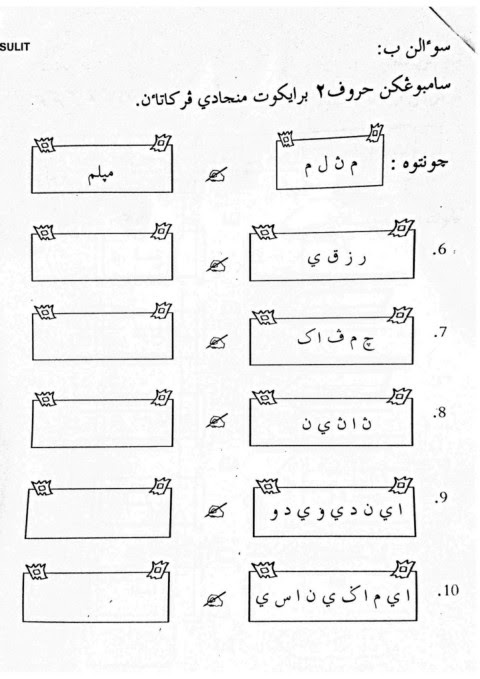 SULIT
سوءالن ب:
سامبوڠکن حروف٢ برايکوت منجادي ڤرکاتاءن.
چونتوه : م ڽ ل م مڽلم
6. ر ز ق ي
7. چ م ڤ ا ک
8. ڽ ا ڽ ي ن
9. ا ي ن د ي و ي د و
10. ا ي م ا ݢ ي ن ا س ي